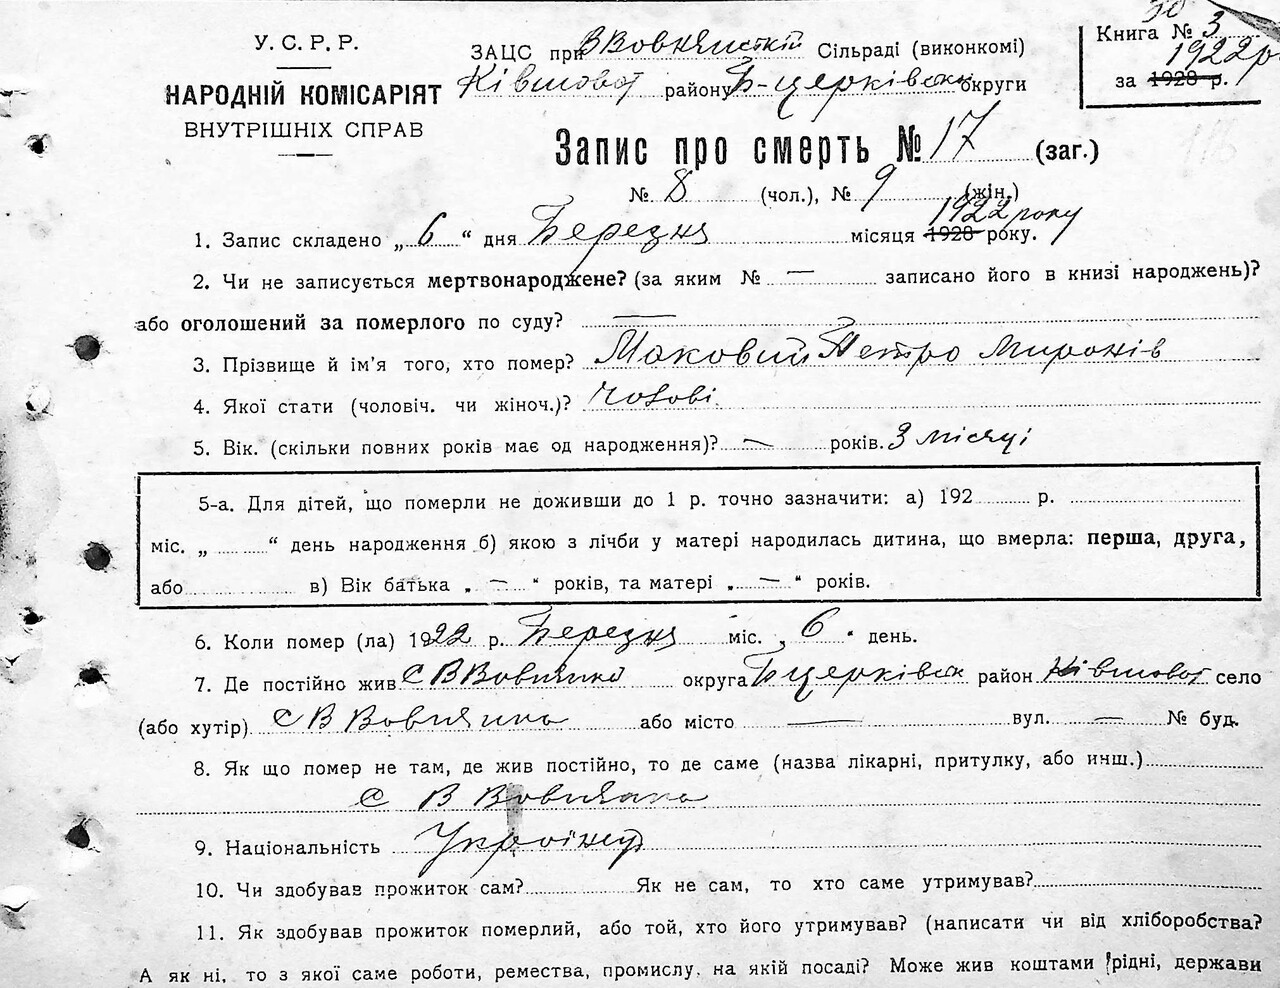 У. С. Р. Р.
НАРОДНІЙ КОМІСАРІЯТ
ВНУТРІШНІХ СПРАВ
ЗАЦС при В Вовнянській Сільраді (виконкомі)
Ківшоват району Б-церківськ округи
Книга № 3
за 1928 р. 1922 р
Запис про смерть № 17 (заг.)
№ 8 (чол.), № 9 (жін.)
1. Запис складено „ 6 “ дня Березня місяця 1928 року. 1922 року
2. Чи не записується мертвонароджене? (за яким № — записано його в книзі народжень)?
або оголошений за померлого по суду? —
3. Прізвище й ім'я того, хто помер? Маковий Петро Миронів
4. Якої стати (чоловіч. чи жіноч.)? Чолові
5. Вік. (скільки повних років має од народження)? — років. 3 місяці
5-а. Для дітей, що померли не доживши до 1 р. точно зазначити: а) 192 р.
міс. „ “ день народження б) якою з лічби у матері народилась дитина, що вмерла: перша, друга,
або в) Вік батька „ — “ років, та матері „ — “ років.
6. Коли помер (ла) 1922 р. Березня міс. „ 6 “ день.
7. Де постійно жив С В Вовнянка округа Б церківськ район Ківшоват село
(або хутір) С В Вовнянка або місто — вул. — № буд.
8. Як що помер не там, де жив постійно, то де саме (назва лікарні, притулку, або инш.)
С В Вовнянка
9. Національність Українец
10. Чи здобував прожиток сам? Як не сам, то хто саме утримував?
11. Як здобував прожиток померлий, або той, хто його утримував? (написати чи від хліборобства?
А як ні, то з якої саме роботи, ремества, промислу, на якій посаді? Може жив коштами рідні, держави